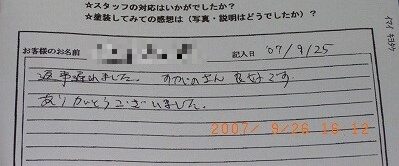 ☆スタッフの対応はいかがでしたか?
☆塗装してみての感想は(写真・説明はどうでしたか)?
お客様のお名前 記入日 07/9/25
返事遅れました。 良好です
ありがとうございました。
2007/ 9/26 16:12